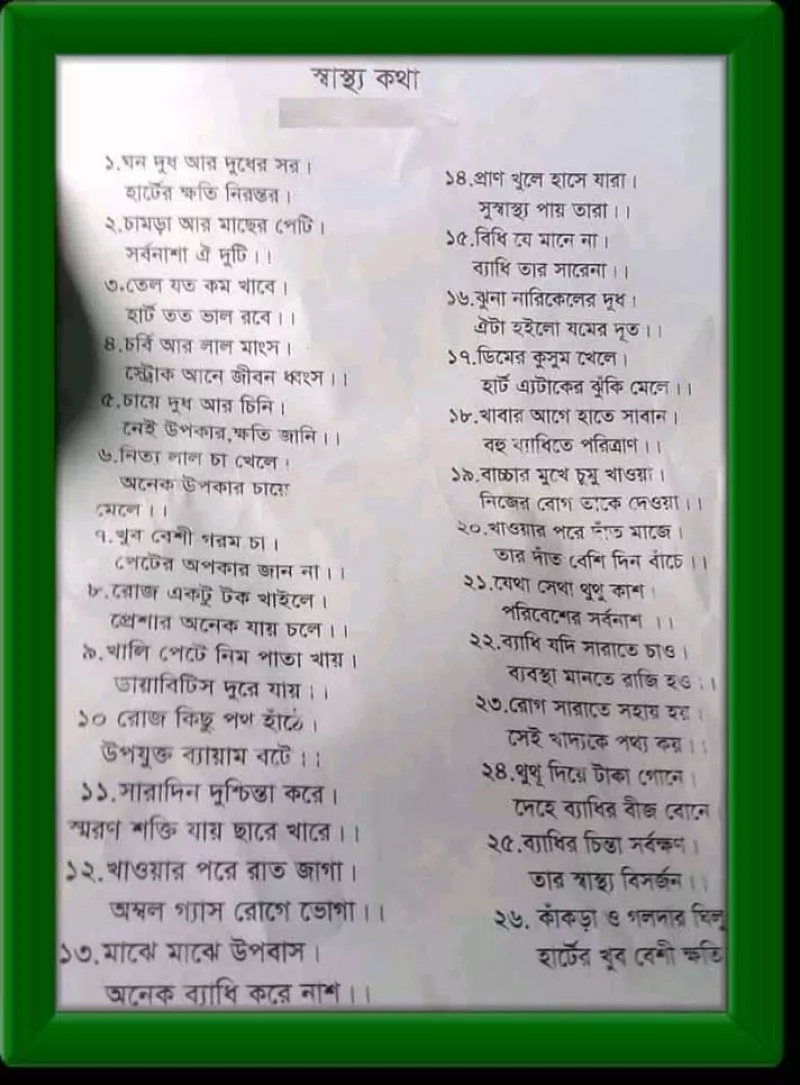 স্বাস্থ্য কথা
১.ঘন দুধ আর দুধের সর।
হার্টের ক্ষতি নিরন্তর।
২.চামড়া আর মাছের পেটি।
সর্বনাশা ঐ দুটি।।
৩.তেল যত কম খাবে।
হার্ট তত ভাল রবে।।
৪.চর্বি আর লাল মাংস।
স্ট্রোক আনে জীবন ধ্বংস।।
৫.চায়ে দুধ আর চিনি।
নেই উপকার,ক্ষতি জানি।।
৬.নিত্য লাল চা খেলে।
অনেক উপকার চায়ে
মেলে।।
৭.খুব বেশী গরম চা।
পেটের অপকার জান না।।
৮.রোজ একটু টক খাইলে।
প্রেশার অনেক যায় চলে।।
৯.খালি পেটে নিম পাতা খায়।
ডায়াবিটিস দুরে যায়।।
১০ রোজ কিছু পথ হাঁঠে।
উপযুক্ত ব্যায়াম বটে।।
১১.সারাদিন দুশ্চিন্তা করে।
স্মরণ শক্তি যায় ছারে খারে।।
১২.খাওয়ার পরে রাত জাগা।
অম্বল গ্যাস রোগে ভোগা।।
১৩.মাঝে মাঝে উপবাস।
অনেক ব্যাধি করে নাশ।।
১৪.প্রাণ খুলে হাসে যারা।
সুস্বাস্থ্য পায় তারা।।
১৫.বিধি যে মানে না।
ব্যাধি তার সারেনা।।
১৬.ঝুনা নারিকেলের দুধ।
ঐটা হইলো যমের দূত।।
১৭.ডিমের কুসুম খেলে।
হার্ট এ্যটাকের ঝুঁকি মেলে।।
১৮.খাবার আগে হাতে সাবান।
বহু ব্যাধিতে পরিত্রাণ।।
১৯.বাচ্চার মুখে চুমু খাওয়া।
নিজের রোগ তাকে দেওয়া।।
২০.খাওয়ার পরে দাঁত মাজে।
তার দাঁত বেশি দিন বাঁচে।।
২১.যেথা সেথা থুথু কাশ।
পরিবেশের সর্বনাশ ।।
২২.ব্যাধি যদি সারাতে চাও।
ব্যবস্থা মানতে রাজি হও।।
২৩.রোগ সারাতে সহায় হয়।
সেই খাদ্যকে পথ্য কয়।।
২৪.থুথু দিয়ে টাকা গোনে।
দেহে ব্যাধির বীজ বোনে
২৫.ব্যাধির চিন্তা সর্বক্ষণ।
তার স্বাস্থ্য বিসর্জন।।
২৬. কাঁকড়া ও গলদার ঘিলু
হার্টের খুব বেশী ক্ষতি